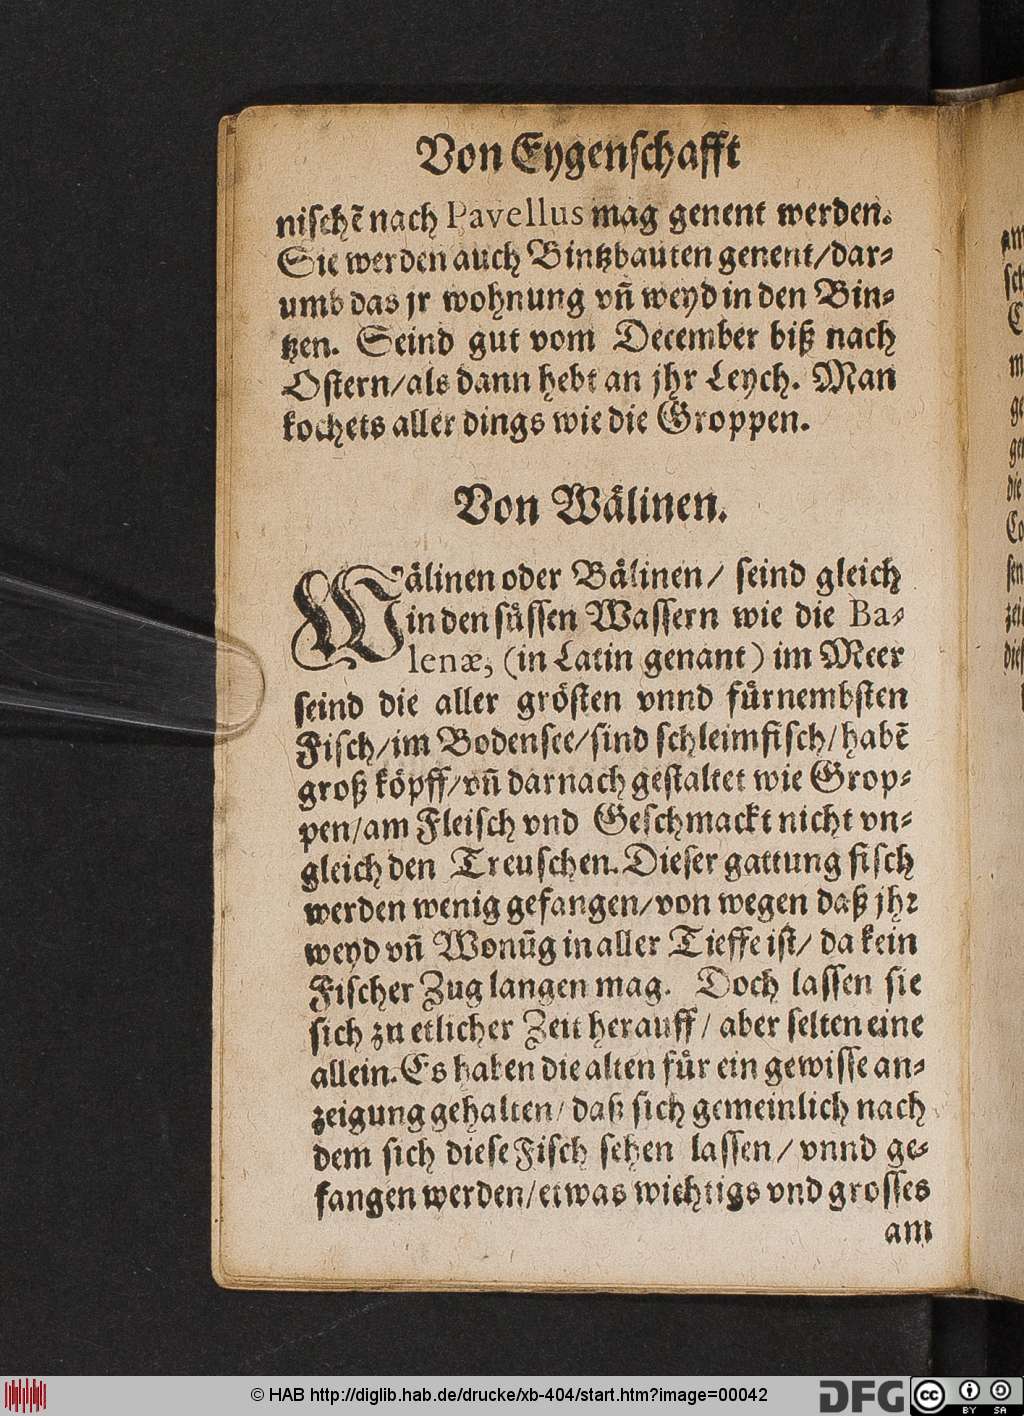 Von Eygenschafft
nischẽ nach Pavellus mag genent werden.
Sie werden auch Bintzbauten genent/dar-
umb das jr wohnung vñ weyd in den Bin-
tzen. Seind gut vom December biß nach
Ostern/als dann hebt an jhr Leych. Man
kochets aller dings wie die Groppen.
Von Wälinen.
Wälinen oder Bälinen/ seind gleich
in den süssen Wassern wie die Ba-
lenæ, (in Latin genant) im Meer
seind die aller grösten vnnd fürnembsten
Fisch/im Bodensee/sind schleimfisch/habẽ
groß köpff/vñ darnach gestaltet wie Grop-
pen/am Fleisch vnd Geschmackt nicht vn-
gleich den Treuschen. Dieser gattung fisch
werden wenig gefangen/von wegen daß jhr
weyd vñ Wonũg in aller Tieffe ist/ da kein
Fischer Zug langen mag. Doch lassen sie
sich zu etlicher Zeit herauff/ aber selten eine
allein. Es haben die alten für ein gewisse an-
zeigung gehalten/ daß sich gemeinlich nach
dem sich diese Fisch sehen lassen/ vnnd ge-
fangen werden/etwas wichtigs vnd grosses
am
© HAB http://diglib.hab.de/drucke/xb-404/start.htm?image=00042
DFG
cc
BY SA